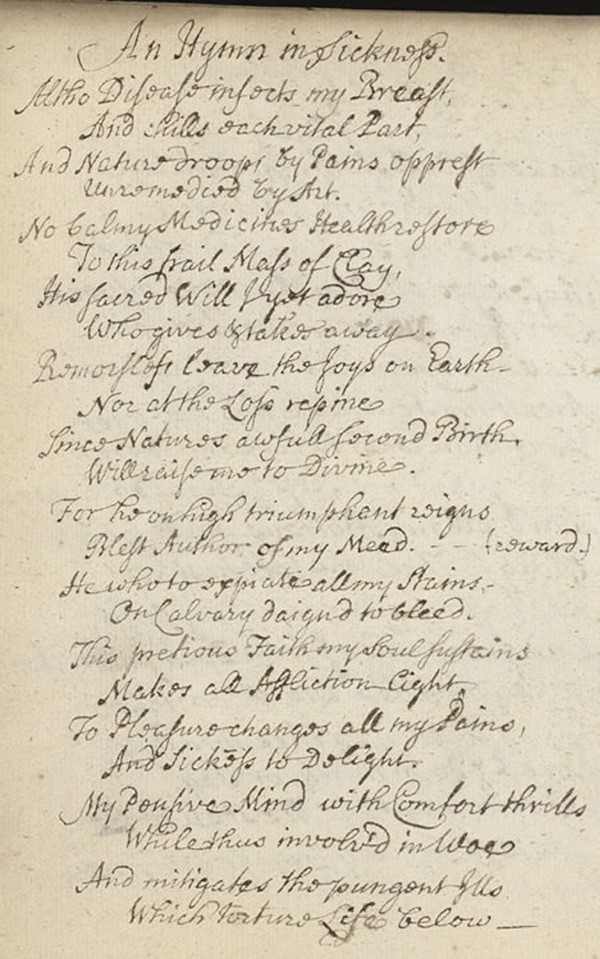 An Hymn in Sickness.
Altho Disease infects my Breast,
And chills each vital Part,
And Nature droops by Pains opprest
Unremedied by Art.
No balmy Medicines Health restore
To this frail Mass of Clay,
His sacred Will I yet adore
Who gives & takes away.
Remorsless leave the Joys on Earth
Nor at the Loss repine
Since Natures awfull second Birth,
Will raise me to Divine.
For he on high triumphant reigns
Blest Author of my Meed. - - (reward.)
He who to expiate all my Stains
On Calvary daignd to bleed.
This pretious Faith my Soul sustains
Makes all Affliction Light,
To Pleasure changes all my Pains,
And Sickēss to Delight.
My Pensive Mind with Comfort thrills
While thus involv'd in Woe
And mitigates the pungent Ills
Which torture Life below —